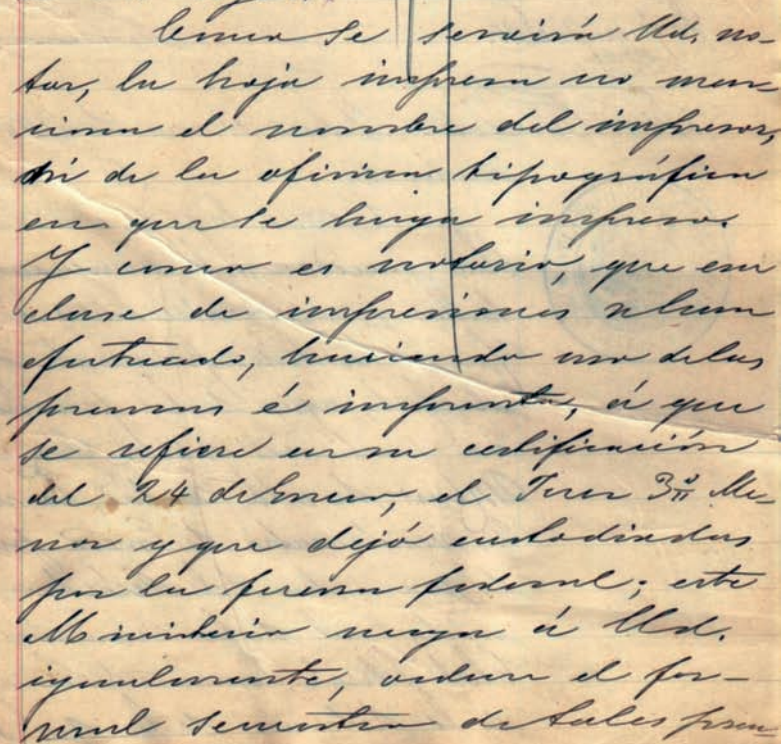 Como se servirá Ud. no-
tar, la hoja impresa no men-
ciona el nombre del impresor,
ni de la oficina tipográfica
en que se haya impreso.
Y como es notorio, que esa
clase de impresiones se han
efectuado, haciendo uso de las
prensas é imprenta, á que
se refiere en su certificación
del 24 de Enero, el Juez 3º Me-
nor y que dejó custodiadas
por la fuerza federal; este
Ministerio ruega á Ud.
igualmente, ordene el for-
mal secuestro de tales pren-